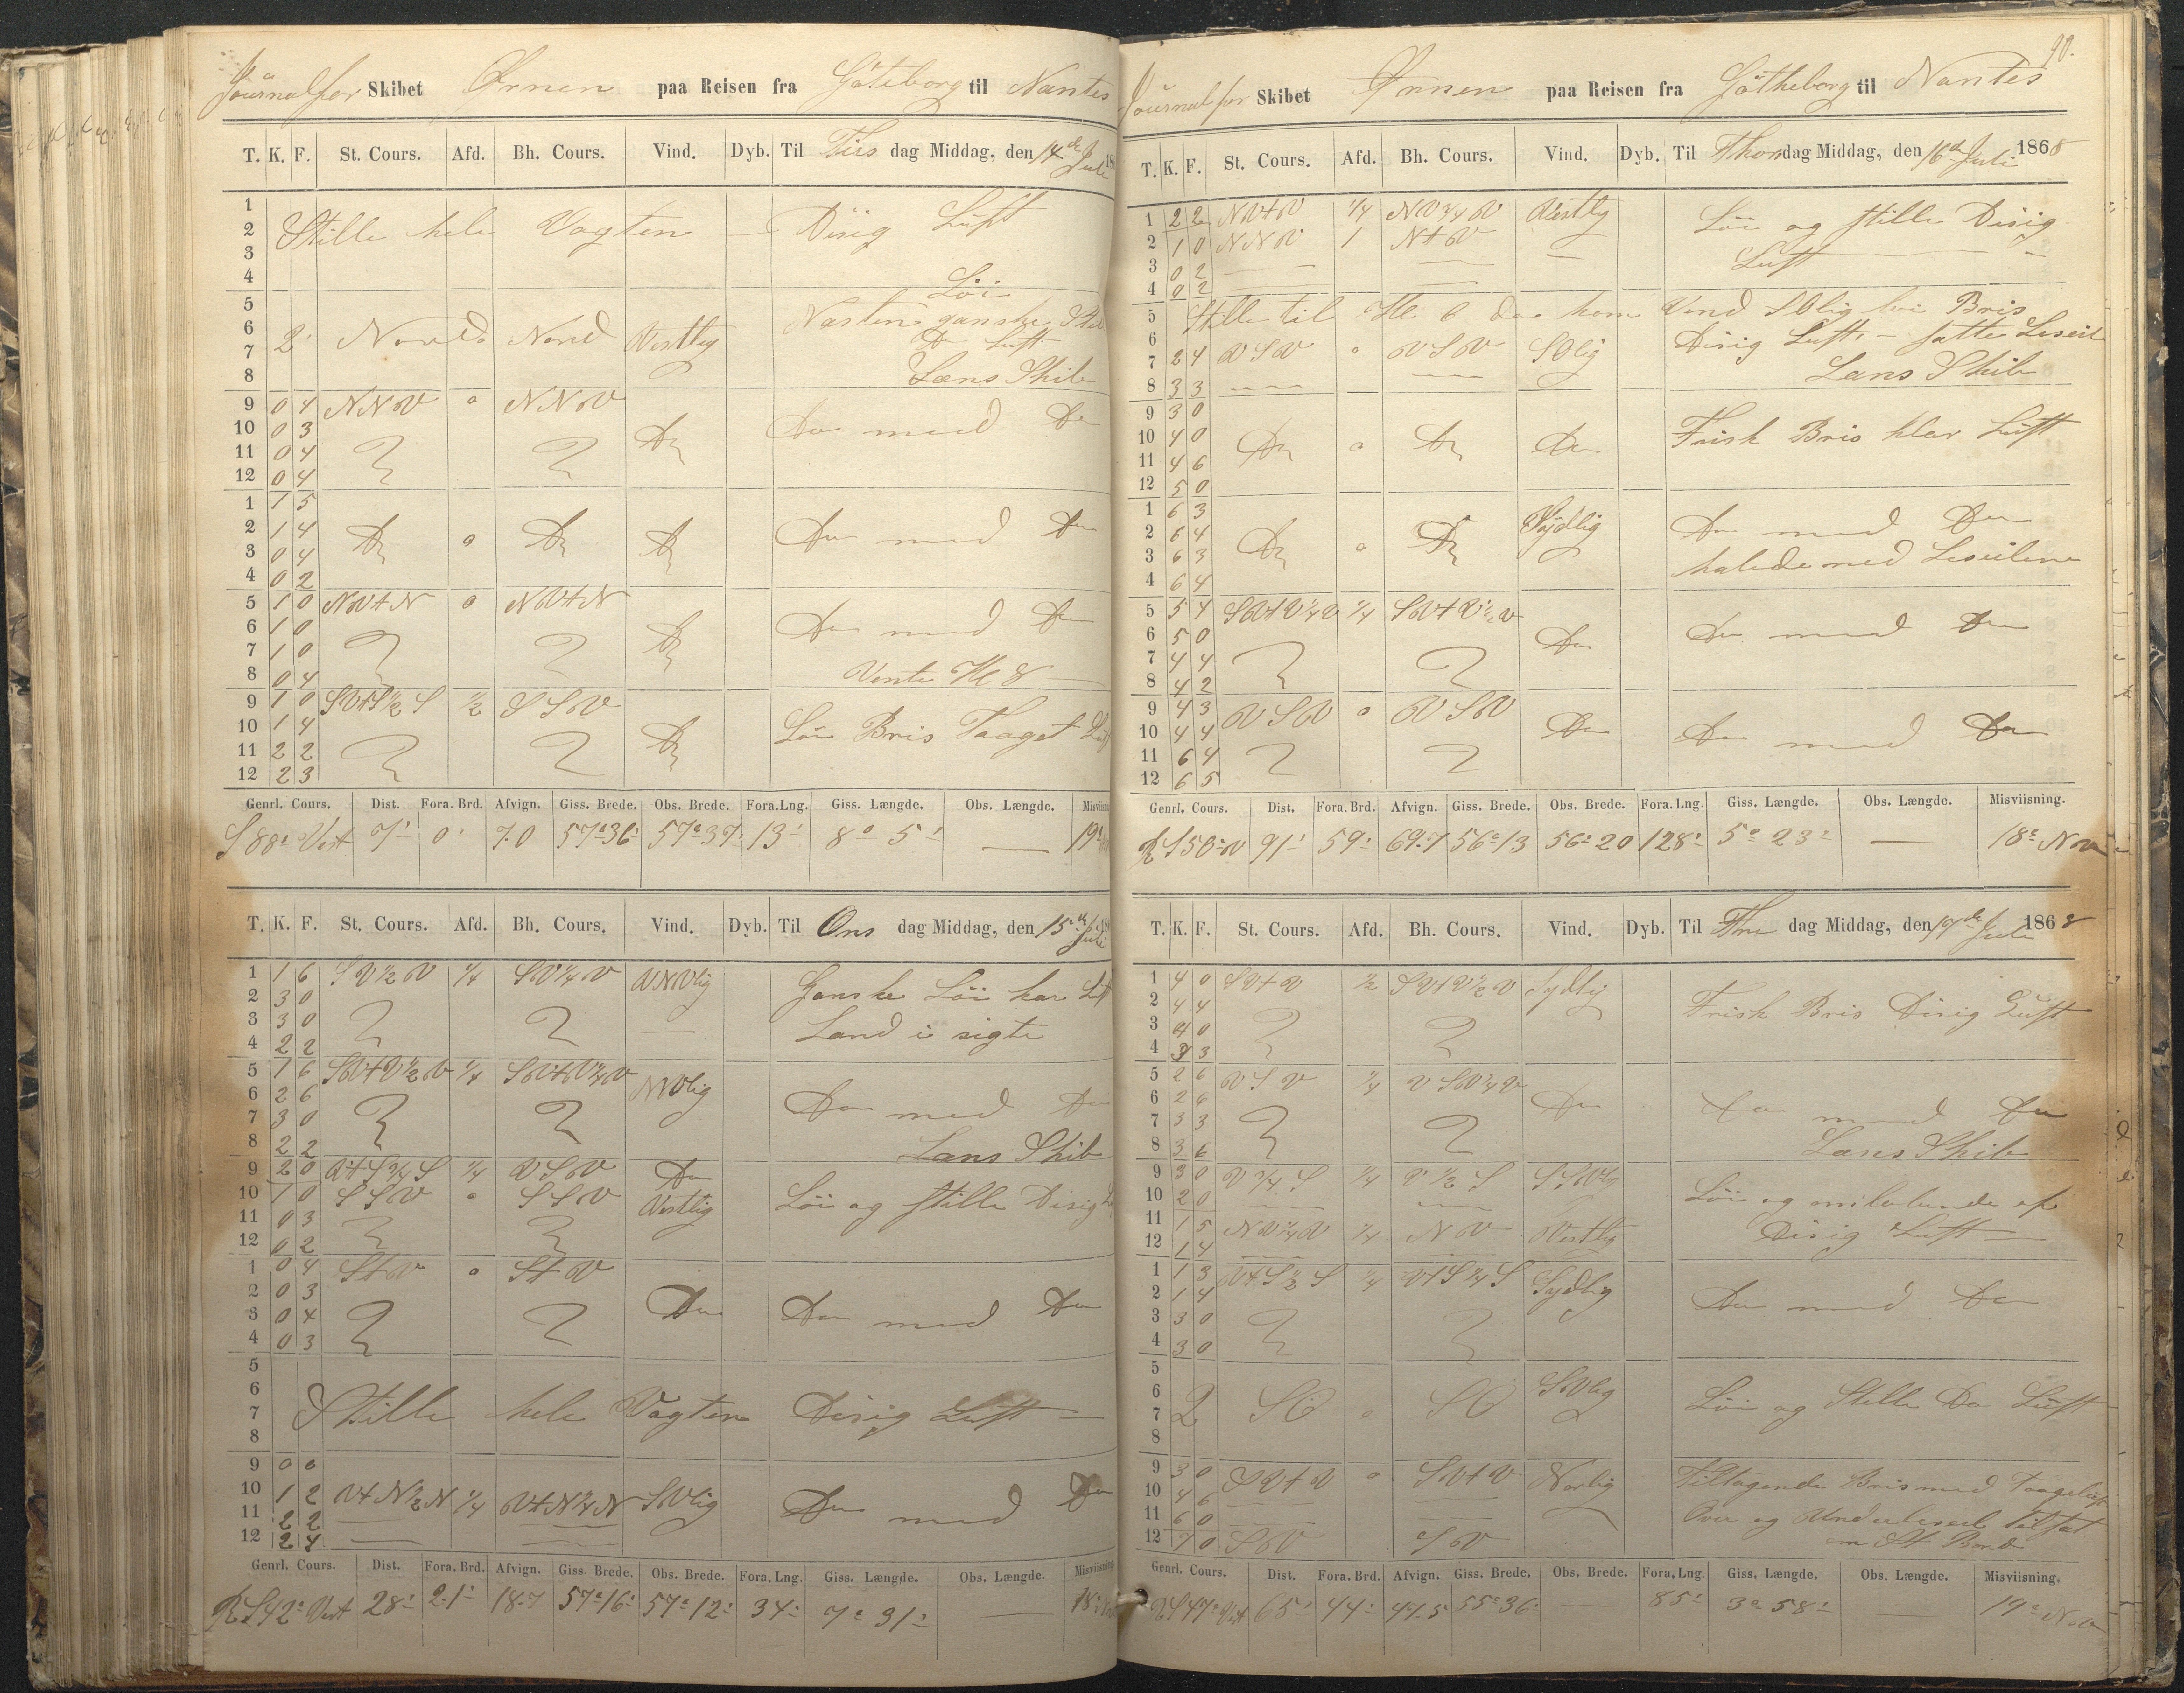 Journal for Skibet Ørnen paa Reisen fra Göteborg til Nantes
T. K. F. St. Cours. Afd. Bh. Cours. Vind. Dyb. Til Tirs dag Middag, den 14de Juli 18
1
2 Stille hele Vagten — Disig Luft
3
4
5 Löi
6 Næsten ganske Stil
7 2 Nord o Nord Vestlig Do Luft
8 Læns Skib
9 0 4 NNV o NNV
10 0 3 Do Do med Do
11 0 4
12 0 4
1 1 5
2 1 4 Do o Do Do Do med Do
3 0 4
4 0 2
5 1 0 NVtN o NVtN
6 1 0 Do Do med Do
7 1 0
8 0 4 Vente Kl 8
9 1 0 SVtS½S ½ SSV
10 1 4 Do Löi Bris Taaget Luft
11 2 2
12 2 3
Genrl. Cours. Dist. Fora. Brd. Afvign. Giss. Brede. Obs. Brede. Fora. Lng. Giss. Længde. Obs. Længde. Misviisn
S 88° Vest 7' 0' 7.0 57°36' 57°37' 13' 8° 5' — 19°
T. K. F. St. Cours. Afd. Bh. Cours. Vind. Dyb. Til Ons dag Middag, den 15de Juli
1 1 6 SV½V ¼ SV¼V VNVlig Ganske Löi klar Luft
2 3 0
3 3 0 — Land i sigte
4 2 2
5 1 6 SVtV½V ¼ SVtV¼V NVlig
6 2 6 Do med Do
7 3 0
8 2 2 Læns Skib
9 2 0 VtS¾S ¼ VSV Do
10 1 0 SSV o SSV Vestlig Löi og stille Disig
11 0 3
12 0 2
1 0 4 StV o StV
2 0 3 Do Do med Do
3 0 4
4 0 3
5
6
7 Stille hele Vagten Disig Luft —
8
9 0 0
10 1 2 VtN½N ¼ VtN¼N SVlig Do med Do
11 2 2 — —
12 2 4 — —
Genrl. Cours. Dist. Fora. Brd. Afvign. Giss. Brede. Obs. Brede. Fora. Lng. Giss. Længde. Obs. Længde. Misviisning
R S 42° Vest 28' 21' 18.7 57°16' 57°12' 34' 7° 31' — 18°
90.
Journal for Skibet Ørnen paa Reisen fra Götheborg til Nantes
T. K. F. St. Cours. Afd. Bh. Cours. Vind. Dyb. Til Thors dag Middag, den 16d Juli 1868
1 2 2 NVtV ¼ NV¾V Vestlig Löi og stille Disig
2 1 0 NNV 1 NtV — Luft — — —
3 0 2 — — —
4 0 2
5 Stille til Kl 6 da kom Vind SOlig löi Bris
6 Disig Luft, — satte Leseil
7 2 4 VSV o VSV SOlig
8 3 3 — — — — Læns Skib
9 3 0
10 4 0 Do o Do Do Frisk Bris klar Luft
11 4 6
12 5 0
1 6 3 Sydlig
2 6 4 Do o Do Do med Do
3 6 3 halede ned Leseilene
4 6 4
5 5 4 SVtV¼V ¼ SVtV½V
6 5 0 Do Do med Do
7 4 4
8 4 2
9 4 3 VSV o VSV
10 4 4 Do Do med Do
11 6 4
12 6 5
Genrl. Cours. Dist. Fora. Brd. Afvign. Giss. Brede. Obs. Brede. Fora. Lng. Giss. Længde. Obs. Længde. Misviisning.
R S 50° V 91' 59' 69.7 56°13 56°20 128' 5° 23' — 18° NV
T. K. F. St. Cours. Afd. Bh. Cours. Vind. Dyb. Til Fre dag Middag, den 17de Juli 1868
1 4 0 SVtV ½ SVtV½V Sydlig
2 4 4 Frisk Bris Disig Luft
3 4 0
4 3 3
5 2 6 VSV ¼ VSV¼V
6 2 6 Do Do med Do
7 3 3
8 3 6 Læns Skib
9 3 0 V¾S ¼ V½S SSVlig
10 2 0 — — Löi og
11 1 5 NV¼V ¼ NV Vestlig Disig Luft —
12 1 4 — —
1 1 3 VtS½S ¼ VtS¼S Sydlig
2 1 4 Do med Do
3 3 0
4 3 0
5
6 SVlig
7 2 SO o SO Löi og Stille Do Luft
8
9 3 0 SVtV o SVtV Norlig Tiltagende Bris med Taageluft
10 4 6 — —
11 6 0 — — Over og Underleseil tilsat
12 7 0 SV SV m St Bord
Genrl. Cours. Dist. Fora. Brd. Afvign. Giss. Brede. Obs. Brede. Fora. Lng Giss. Længde. Obs. Længde. Misviisning.
R S 47° Vest 65' 44' 47.5 55°36' — 85' 3° 58' — 19° NV